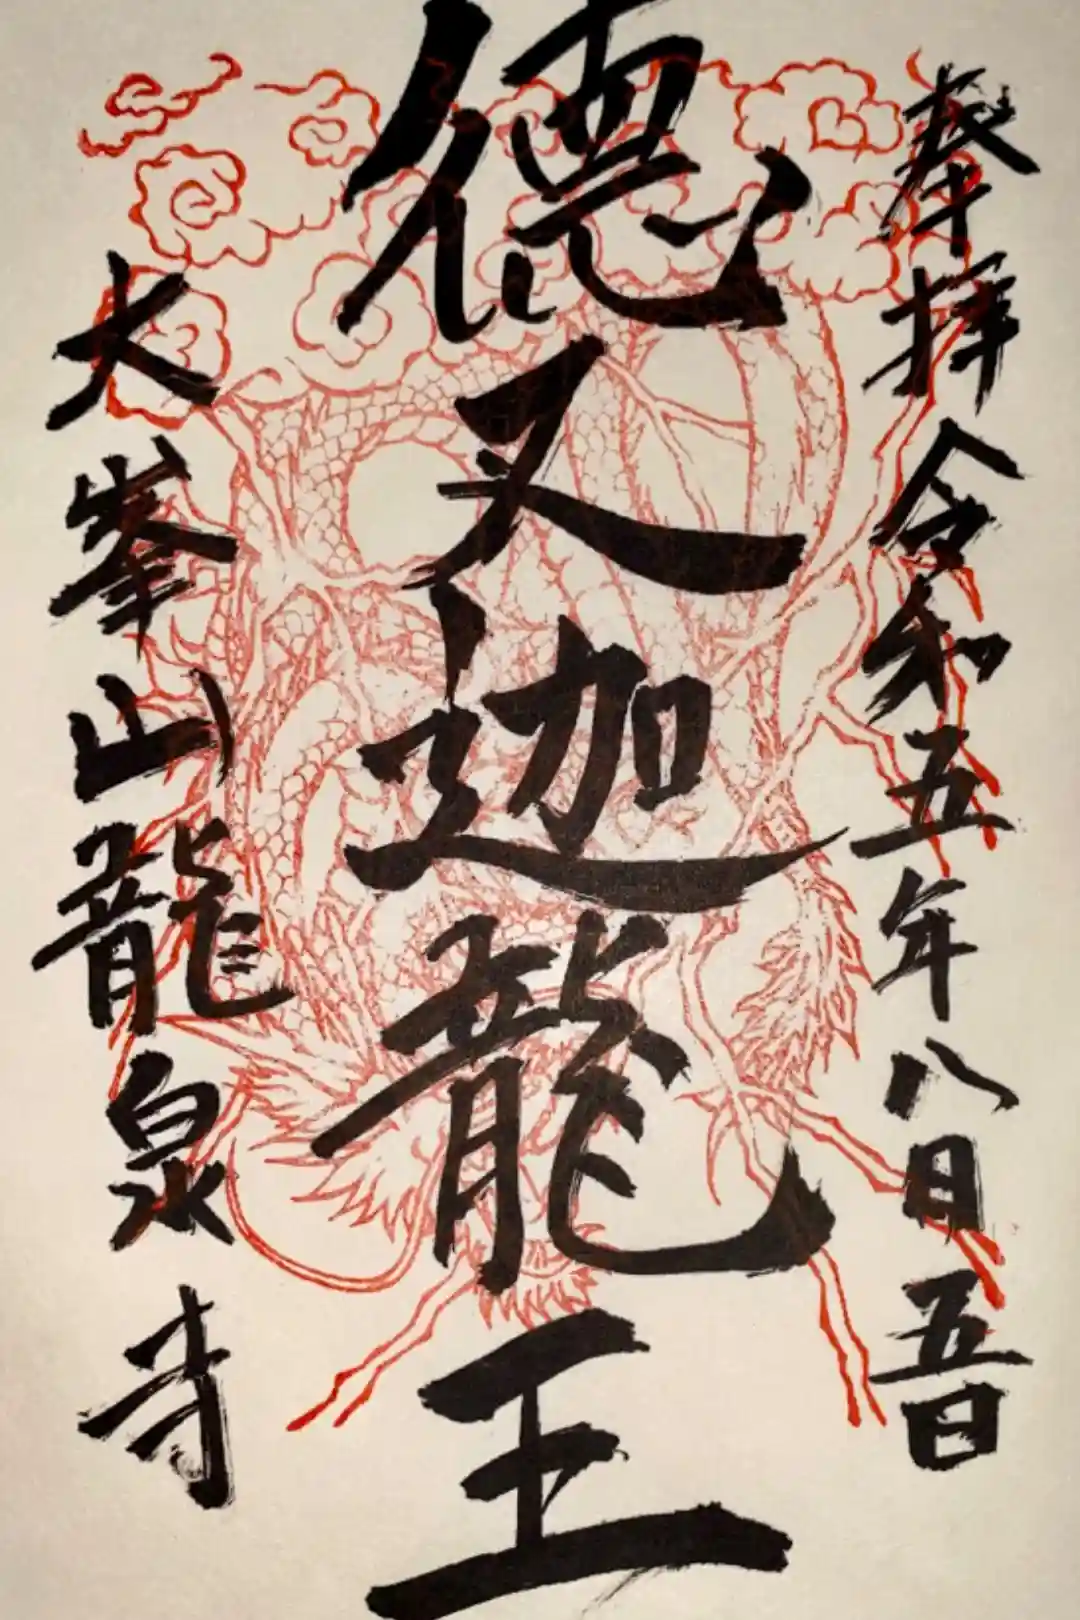 奉拝 令和五年八月五日
徳叉迦龍王
大峯山龍泉寺